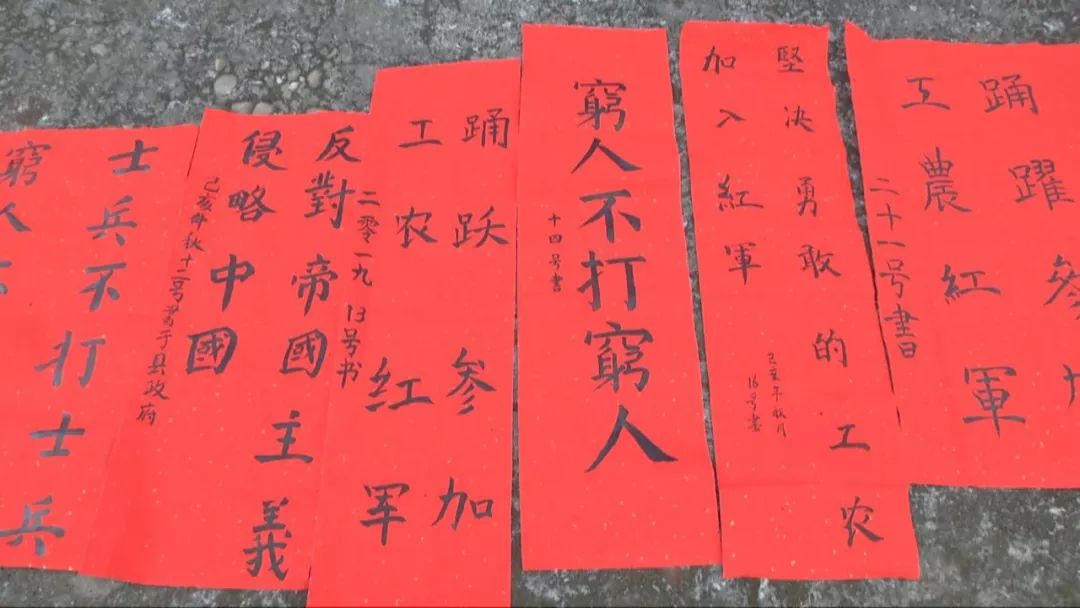 踊躍參加
工農紅軍
二十一号書
堅决勇敢的工农
加入紅軍
己亥年秋月
16号書
窮人不打窮人
十四号書
踊跃参加
工农红军
二零一九 13号书
反對帝國主義
侵略中國
己亥仲秋十二号書于县政府
士兵不打士兵
窮人不